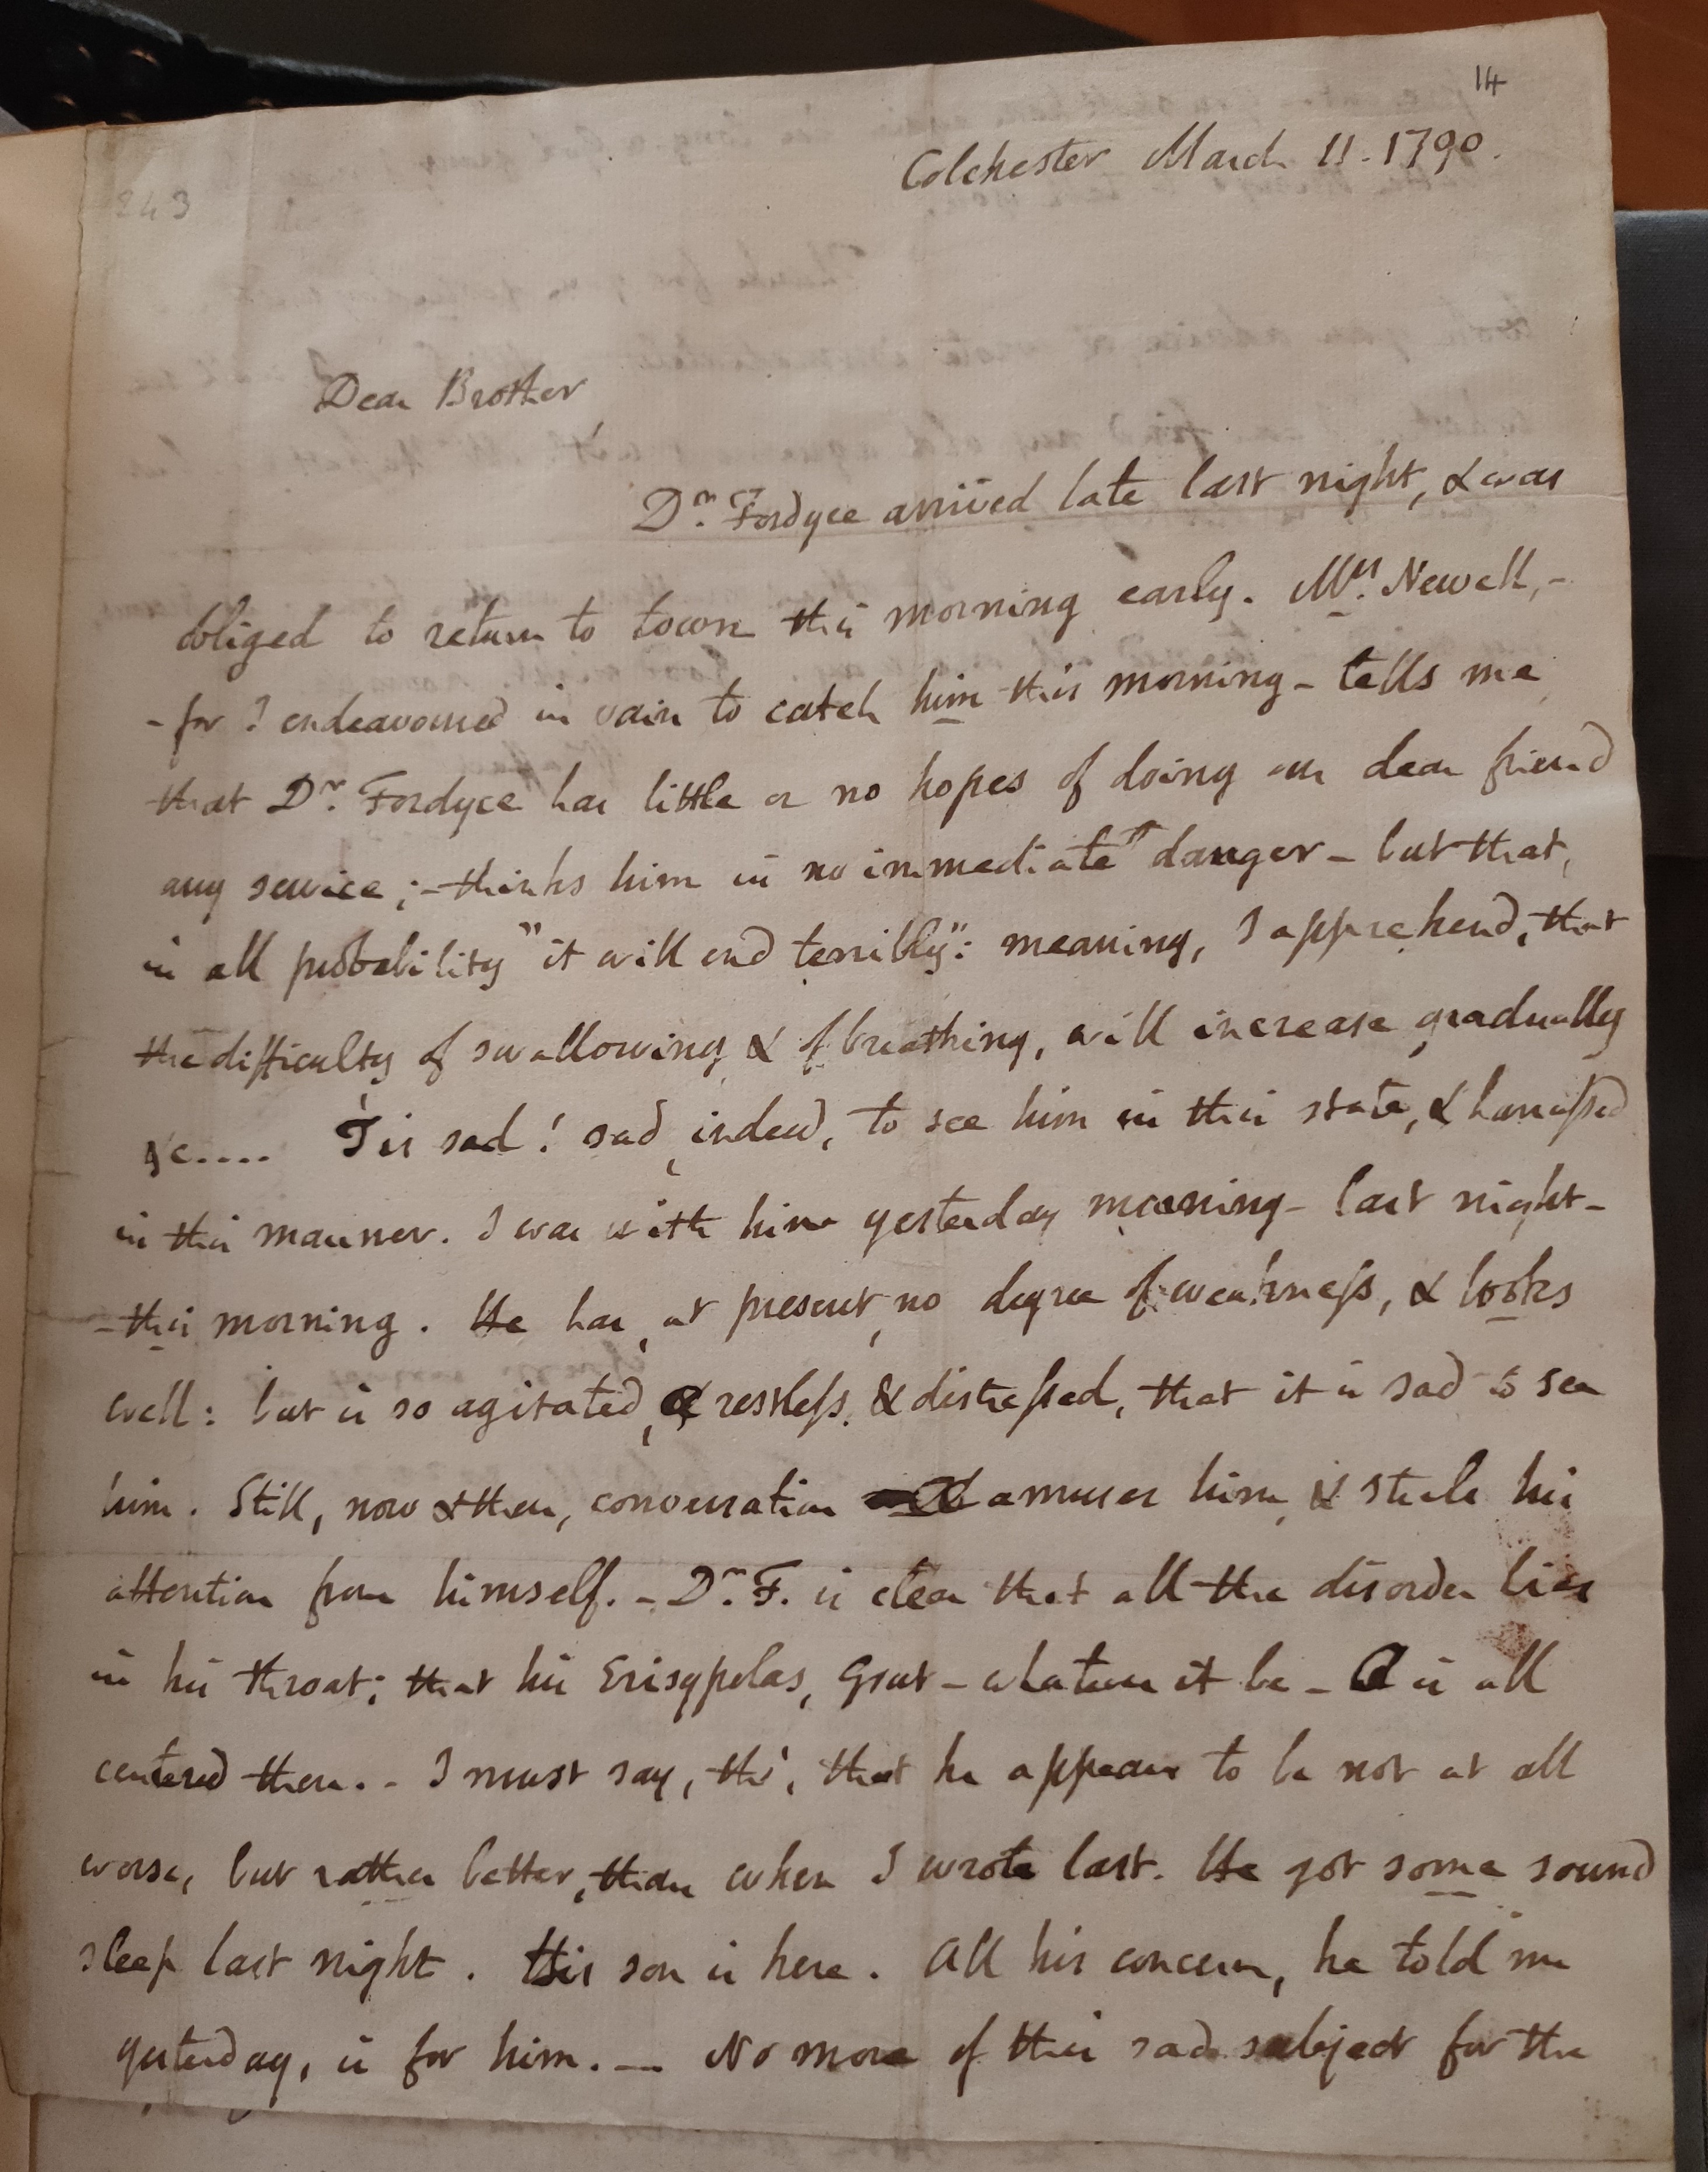 14
Colchester March 11. 1790.
243
Dear Brother,
Dr. Fordyce arrived late last night, & was
obliged to return to town this morning early. Mrs. Newell, -
- for I endeavoured in vain to catch him this morning - tells me
that Dr. Fordyce has little or no hopes of doing our dear friend
any service; - thinks him in no immediate danger - but that,
in all probability "it will end terribly": meaning, I apprehend, that
the difficulty of swallowing & of breathing, will increase gradually
&c.... 'Tis sad! sad, indeed, to see him in this state, & harrassed
in this manner. I was with him yesterday morning - last night -
- this morning. He has, at present, no degree of weakness, & looks
well: but is so agitated, & restless, & distressed, that it is sad to see
him. Still, now & then, conversation amuses him, & steals his
attention from himself. - Dr. F. is clear that all the disorder lies
in his throat; that his Erisypelas, Gout - whatever it be - is all
centered there. - I must say, tho', that he appears to be not at all
worse, but rather better, than when I wrote last. He got some sound
sleep last night. His son is here. All his concern, he told me
yesterday, is for him. — No more of this sad subject for the